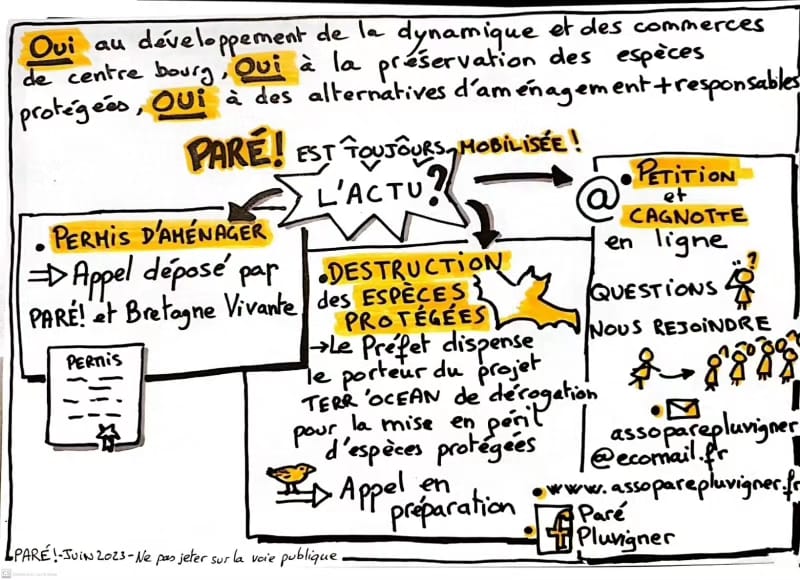 Oui au développement de la dynamique et des commerces
de centre bourg, OUI à la préservation des espèces
protégées, OUI à des alternatives d'aménagement + responsables
PARÉ! EST TOUJOURS MOBILISÉE!
L'ACTU?
• PERMIS D'AMÉNAGER
⇒ Appel déposé par
PARÉ! et Bretagne Vivante
PERMIS
• DESTRUCTION
des ESPÈCES
PROTÉGÉES
→ Le Préfet dispense
le porteur du projet
TERR'OCEAN de dérogation
pour la mise en péril
d'espèces protégées
⇒ Appel en
préparation
@ • PETITION
et
CAGNOTTE
en ligne
QUESTIONS ?
NOUS REJOINDRE
• assoparepluvigner
@ecomail.fr
• www.assoparepluvigner.fr
• f Paré
Pluvigner
PARÉ! - JUIN 2023 - Ne pas jeter sur la voie publique